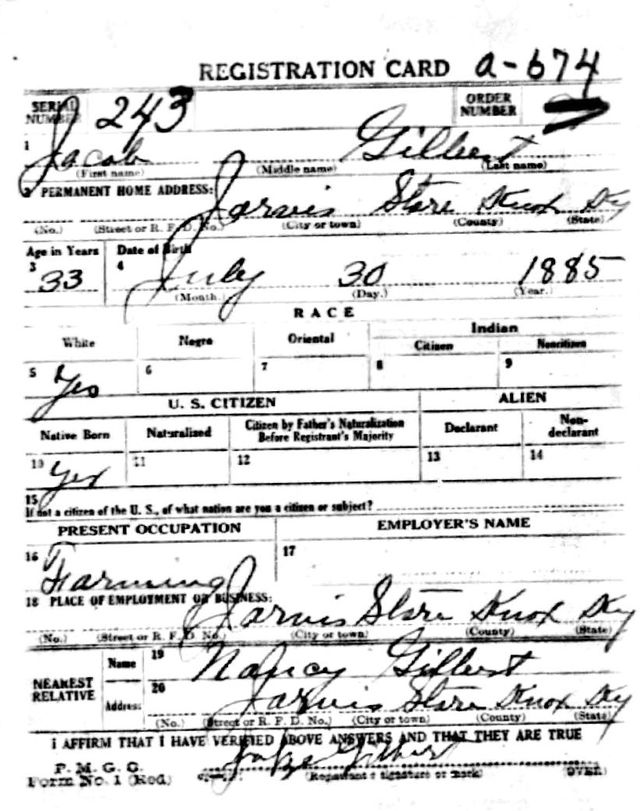 REGISTRATION CARD a-674
SERIAL NUMBER 243 ORDER NUMBER
1 Jacob Gilbert
(First name) (Middle name) (Last name)
2 PERMANENT HOME ADDRESS:
Jarvis Store Knox Ky
(No.) (Street or R. F. D. No.) (City or town) (County) (State)
Age in Years Date of Birth
3 33 4 July 30 1885
(Month.) (Day.) (Year.)
RACE
White Negro Oriental Indian
Citizen Noncitizen
5 Yes 6 7 8 9
U. S. CITIZEN ALIEN
Native Born Naturalized Citizen by Father's Naturalization Before Registrant's Majority Declarant Non-declarant
10 Yes 11 12 13 14
15
If not a citizen of the U. S., of what nation are you a citizen or subject?
PRESENT OCCUPATION EMPLOYER'S NAME
16 Farming 17
18 PLACE OF EMPLOYMENT OR BUSINESS:
Jarvis Store Knox Ky
(No.) (Street or R. F. D. No.) (City or town) (County) (State)
NEAREST RELATIVE Name 19 Nancy Gilbert
Address 20 Jarvis Store Knox Ky
(No.) (Street or R. F. D. No.) (City or town) (County) (State)
I AFFIRM THAT I HAVE VERIFIED ABOVE ANSWERS AND THAT THEY ARE TRUE
P. M. G. O.
Form No. 1 (Red) Gilbert
(Registrant's signature or mark) (OVER)